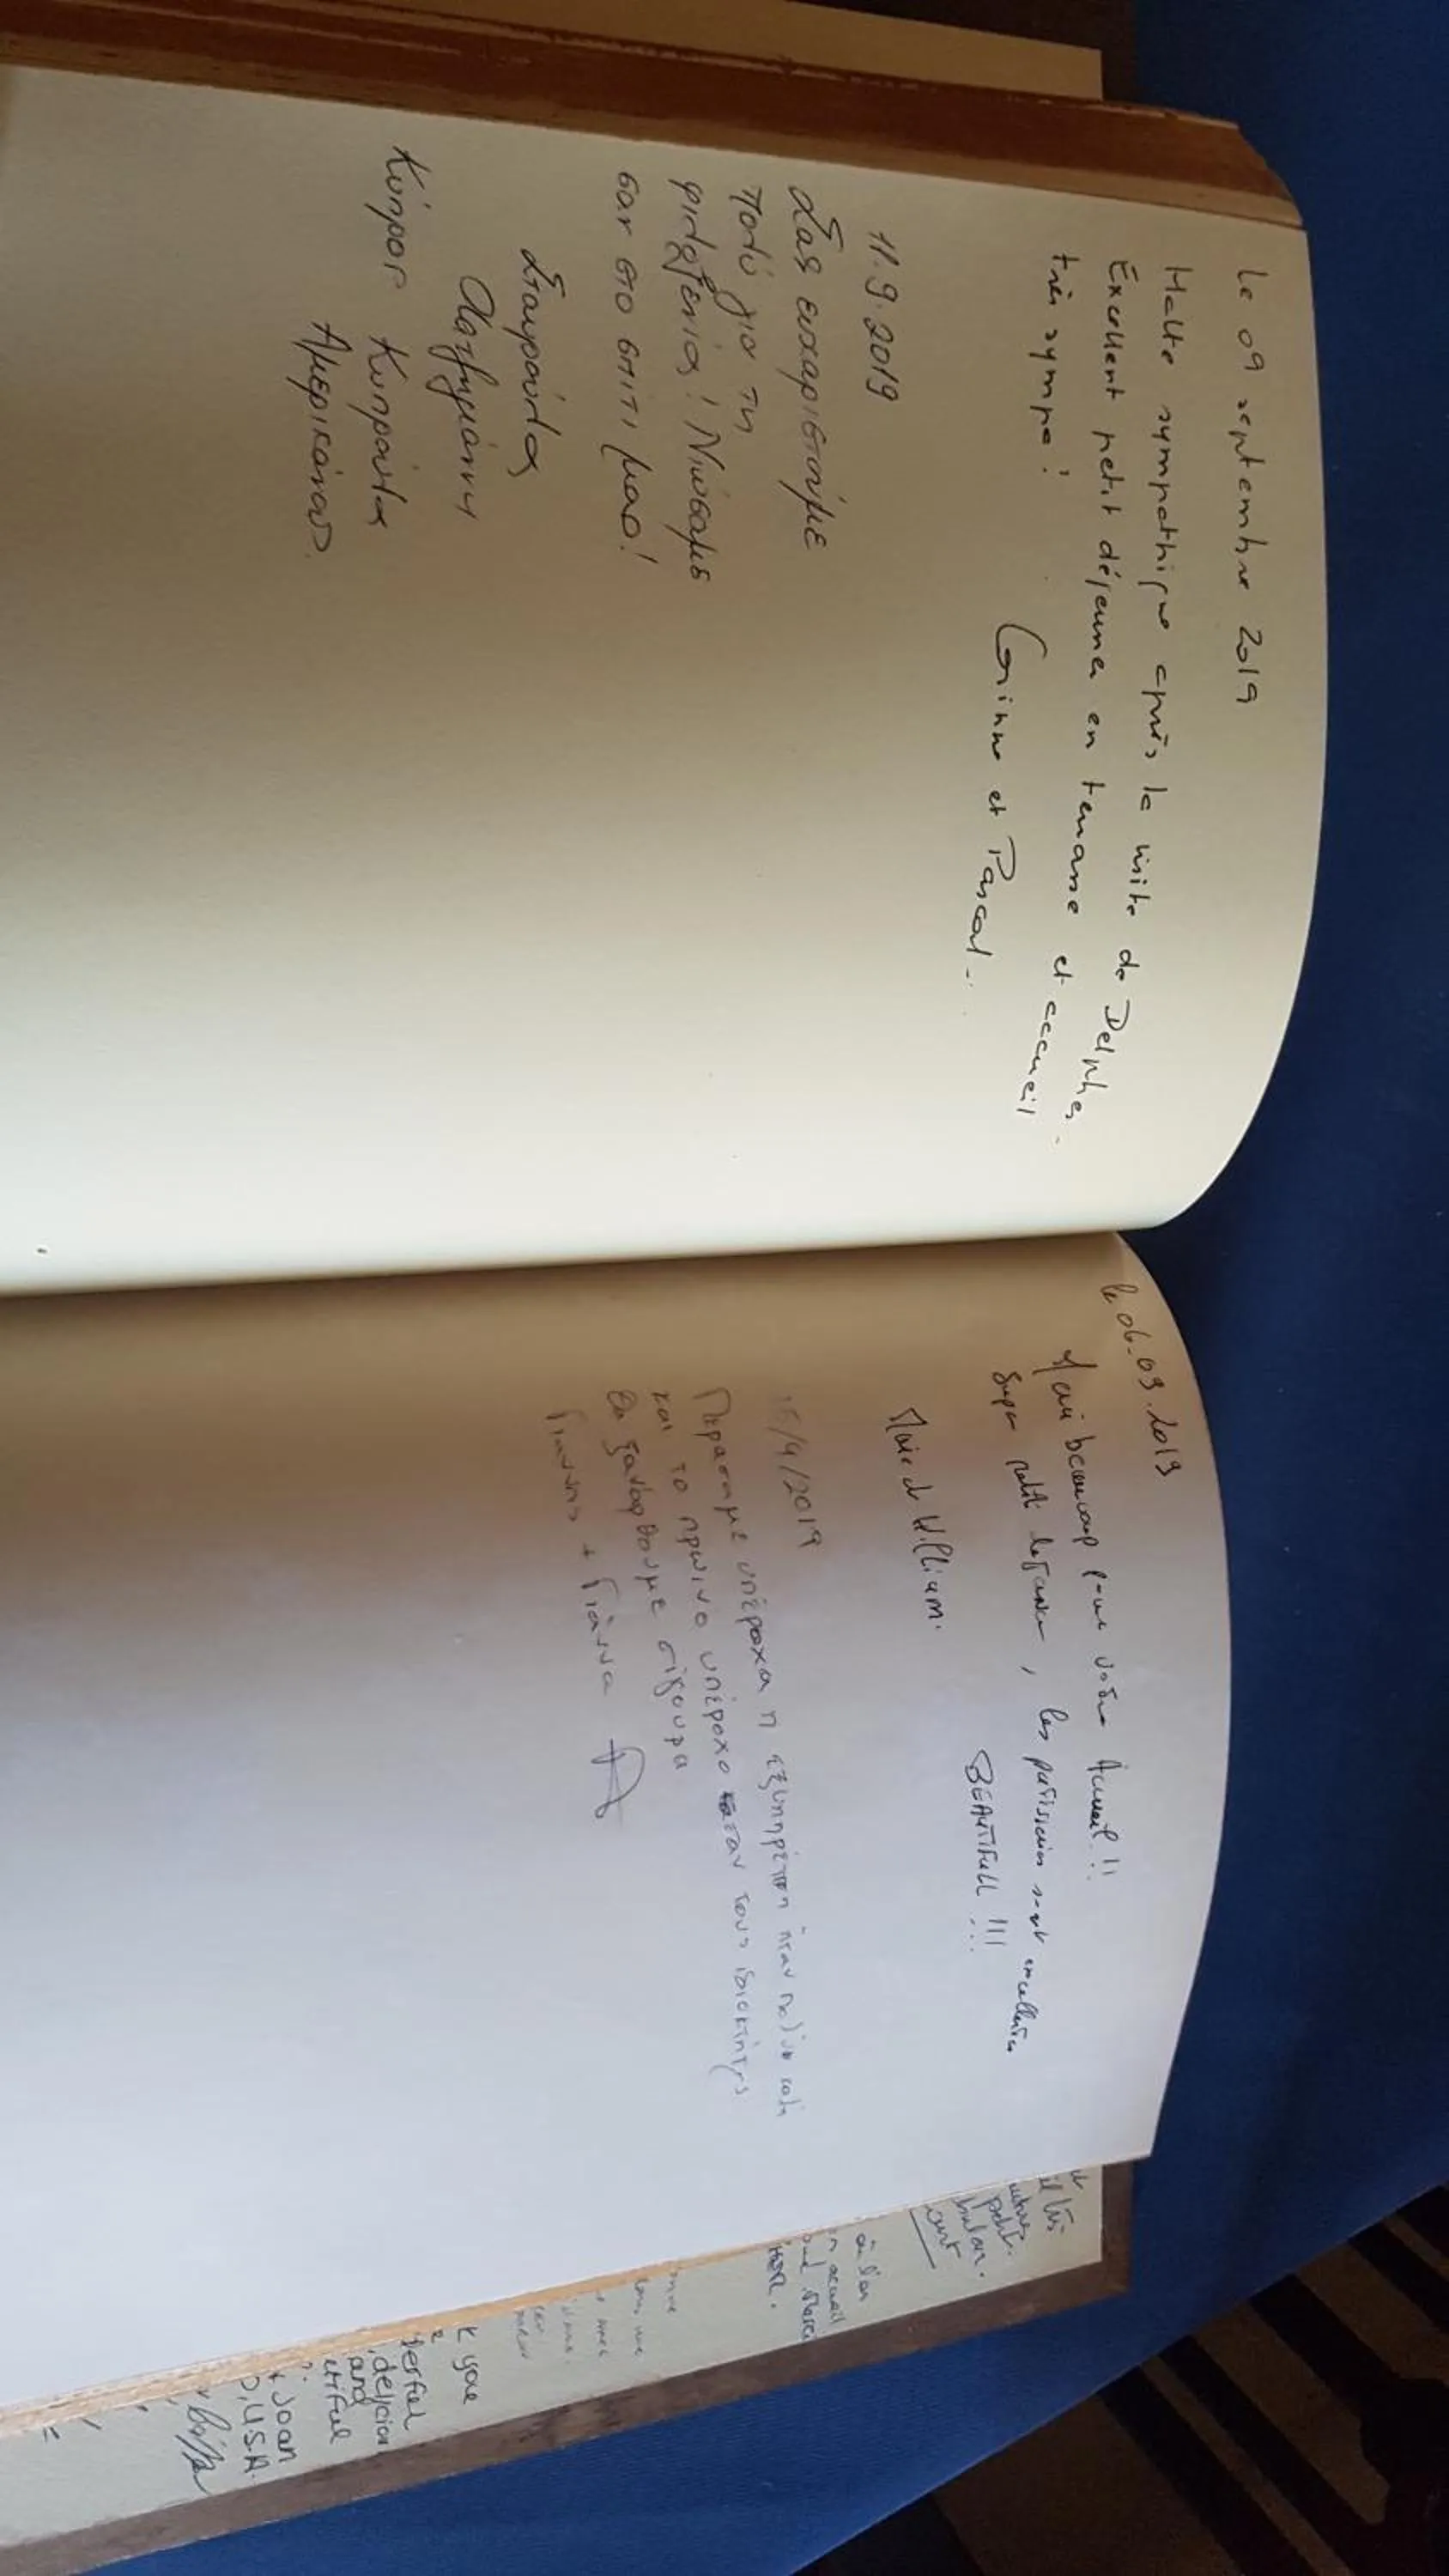 Le 09 septembre 2019
Halte sympathique après la visite de Delphes.
Excellent petit déjeuner en terrasse et accueil
très sympa!
Corinne et Pascal
11.9.2019
Σας ευχαριστούμε
πολύ για τη
φιλοξενία! Νιώσαμε
σαν στο σπίτι μας!
Σταυρούλα
Χατζηγιάννη
Κύπρος Κυπρούλα
Αμερικάνου
le 06.09.2019
Merci beaucoup pour votre Accueil!!
Super petit déjeuner, les patisseries sont excellentes
BEAUTIFULL!!!
Marie et William.
/9/2019
Περασαμε υπέροχα η εξυπηρέτηση ήταν πολύ καλή
και το πρωινο υπέροχο σαν τους ιδιοκτήτες
Θα ξαναρθουμε σίγουρα
Γιαννης + Γιάννα
petit
accueil
Merci
k you
derful
and
+ Joan
U.S.A.